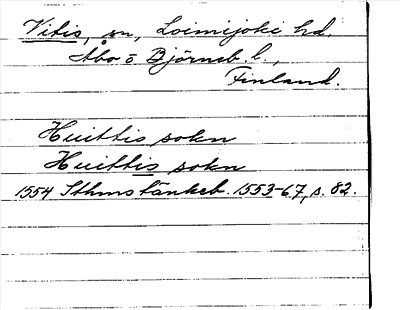 Vitis, sn, Loimijoki hd.
Åbo o Björneb. l.,
Finland.
Huittis sokn
Huittis sokn
1554 Sthms tänkeb. 1553-67, s. 82.